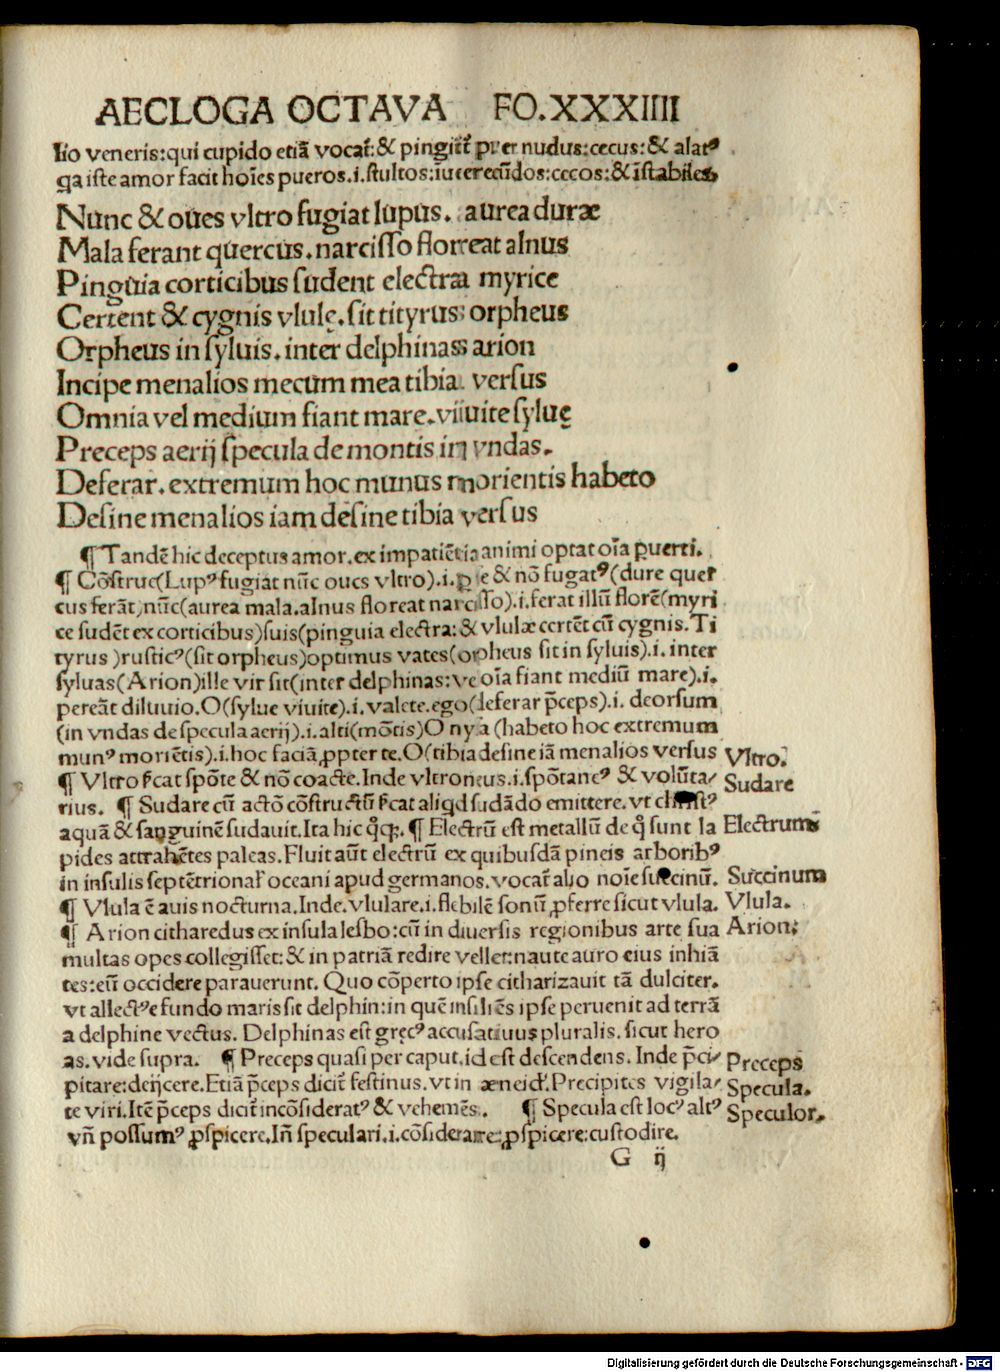 AECLOGA OCTAVA FO.XXXIIII
lio veneris:qui cupido etiā vocat᷑:& pingit᷑ puer nudus:cecus:& alatꝰ
qa iste amor facit hoīes pueros.i.stultos:īuerecūdos:cecos:& īstabiles
Nunc & oues vltro fugiat lupus. aurea duræ
Mala ferant quercus.narcisso floreat alnus
Pinguia corticibus sudent electra myrice
Certent & cygnis vlulę.sit tityrus orpheus
Orpheus in syluis.inter delphinas arion
Incipe menalios mecum mea tibia versus
Omnia vel medium fiant mare.viuite syluę
Preceps aerij specula de montis in vndas.
Deferar.extremum hoc munus morientis habeto
Desine menalios iam desine tibia versus
¶ Tandē hic deceptus amor.ex impatiētia animi optat oīa puerti.
¶ Cōstruc(Lupꝰ fugiat nūc oues vltro).i. & nō fugatꝰ(dure quer
cus ferāt)nūc(aurea mala.alnus floreat narcisso).i.ferat illū florē(myri
ce sudēt ex corticibus)suis(pinguia electra:& vlulæ certēt cū cygnis.Ti
tyrus )rusticꝰ(sit orpheus)optimus vates(orpheus sit in syluis).i. inter
syluas(Arion)ille vir sit(inter delphinas: oīa fiant mediū mare).i.
pereāt diluuio.O(sylue viuite).i.valete.ego(deferar p̄ceps).i. deorsum
(in vndas de specula aerij).i.alti(mōtis)O (habeto hoc extremum
munꝰ moriētis).i.hoc faciā ꝓpter te.O(tibia desine iā menalios versus Vltro.
¶ Vltro s̄cat spōte & nō coacte.Inde vltroneus.i.spōtaneꝰ & volūta/ Sudare
rius. ¶ Sudare cū actō cōstructū s̄cat aliqd sudādo emittere.vt
aquā & sanguinē sudauit.Ita hic qq̄ꝫ.¶ Electrū est metallū de q̄ sunt la Electrum
pides attrahētes paleas.Fluit aūt electrū ex quibusdā pineis arboribꝰ
in insulis septētrional᷑ oceani apud germanos.vocat᷑ alio noīe succinū. Succinum
¶ Vlula ē auis nocturna.Inde.vlulare.i.flebilē sonū ꝓferre sicut vlula. Vlula.
¶ Arion citharedus ex insula lesbo:cū in diuersis regionibus arte sua Arion:
multas opes collegisset:& in patriā redire vellet:naute auro eius inhiā
tes:eū occidere parauerunt. Quo cōperto ipse citharizauit tā dulciter.
vt allectꝰ e fundo maris sit delphin:in quē insiliēs ipse peruenit ad terrā
a delphine vectus. Delphinas est gręcꝰ accusatiuus pluralis. sicut hero
as.vide supra. ¶ Preceps quasi per caput.id est descendens. Inde p̄ci/ Preceps
pitare:deijcere.Etiā p̄ceps dicit᷑ festinus.vt in æneid᷑.Precipites vigila/ Specula.
te viri.Itē p̄ceps dicit᷑ incōsideratꝰ & vehemēs. ¶ Specula est locꝰ altꝰ Speculor.
vn̄ possumꝰ ꝓspicere.In̄ speculari.i.cōsiderare:ꝓspicere:custodire.
G ij
Digitalisierung gefördert durch die Deutsche Forschungsgemeinschaft - DFG